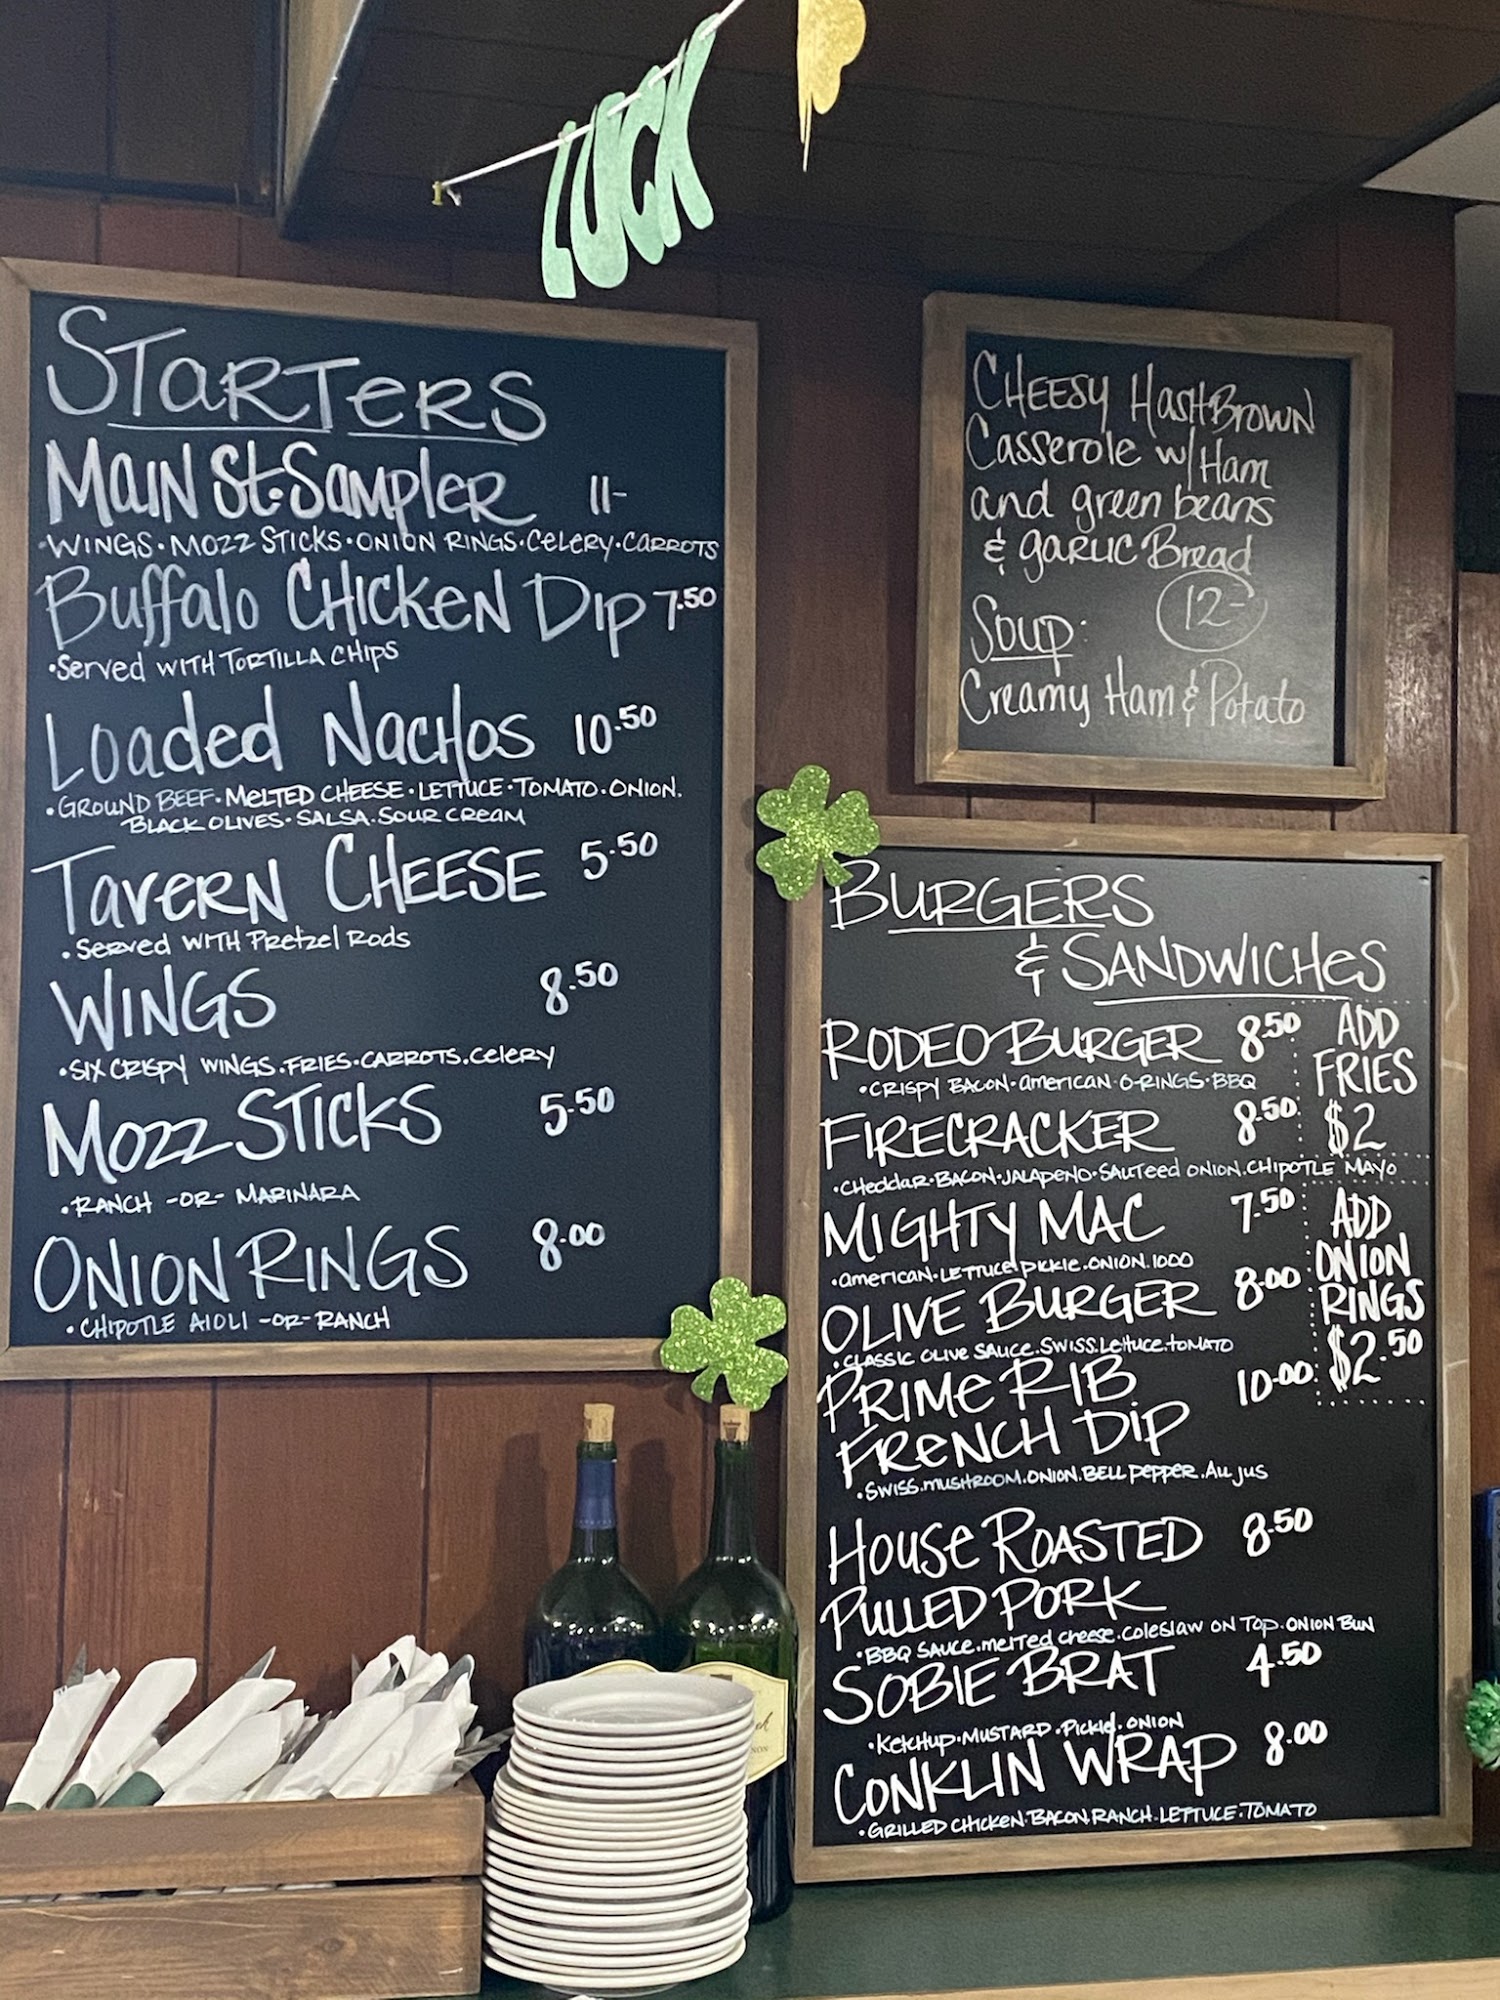 LUCK
STARTERS
MAIN St. Sampler 11-
•WINGS•MOZZ STICKS•ONION RINGS•CELERY•CARROTS
Buffalo CHICKEN DIP 7.50
•Served WITH TORTILLA CHIPS
Loaded Nachos 10.50
•GROUND BEEF•MELTED CHEESE•LETTUCE•TOMATO•ONION.
BLACK OLIVES•SALSA•SOUR CREAM
Tavern CHEESE 5.50
•Served WITH Pretzel Rods
WINGS 8.50
•SIX CRISPY WINGS•FRIES•CARROTS•CELERY
MOZZ STICKS 5.50
•RANCH -OR- MARINARA
ONION RINGS 8.00
•CHIPOTLE AIOLI -OR- RANCH
CHEESY HASHBROWN
Casserole w/ Ham
and green beans
& garlic Bread
12-
Soup:
Creamy Ham & Potato
BURGERS
& SANDWICHES
RODEO BURGER 8.50
•CRISPY BACON•AMERICAN•O-RINGS•BBQ
FIRECRACKER 8.50
•CHEDDAR•BACON•JALAPENO•SAUTEED ONION•CHIPOTLE MAYO
MIGHTY MAC 7.50
•AMERICAN•LETTUCE•PICKLE•ONION•1000
OLIVE BURGER 8.00
•CLASSIC OLIVE SAUCE•SWISS•LETTUCE•TOMATO
PRIME RIB 10.00
FRENCH DIP
•SWISS•MUSHROOM•ONION•BELL PEPPER•AU JUS
HOUSE ROASTED 8.50
PULLED PORK
•BBQ SAUCE•MELTED CHEESE•COLESLAW ON TOP•ONION BUN
SOBIE BRAT 4.50
•KETCHUP•MUSTARD•PICKLE•ONION
CONKLIN WRAP 8.00
•GRILLED CHICKEN•BACON•RANCH•LETTUCE•TOMATO
ADD
FRIES
$2
ADD
ONION
RINGS
$2.50